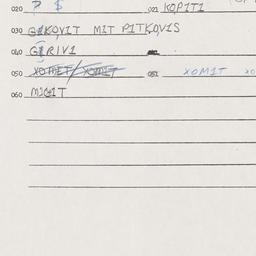 020 ? $ 021 KOPITI
030 GEKOVIT MIT PITKOVIS
040 GERIVI
050 XOMIT/XOMIT 051 XOMIT
060 MIGIT